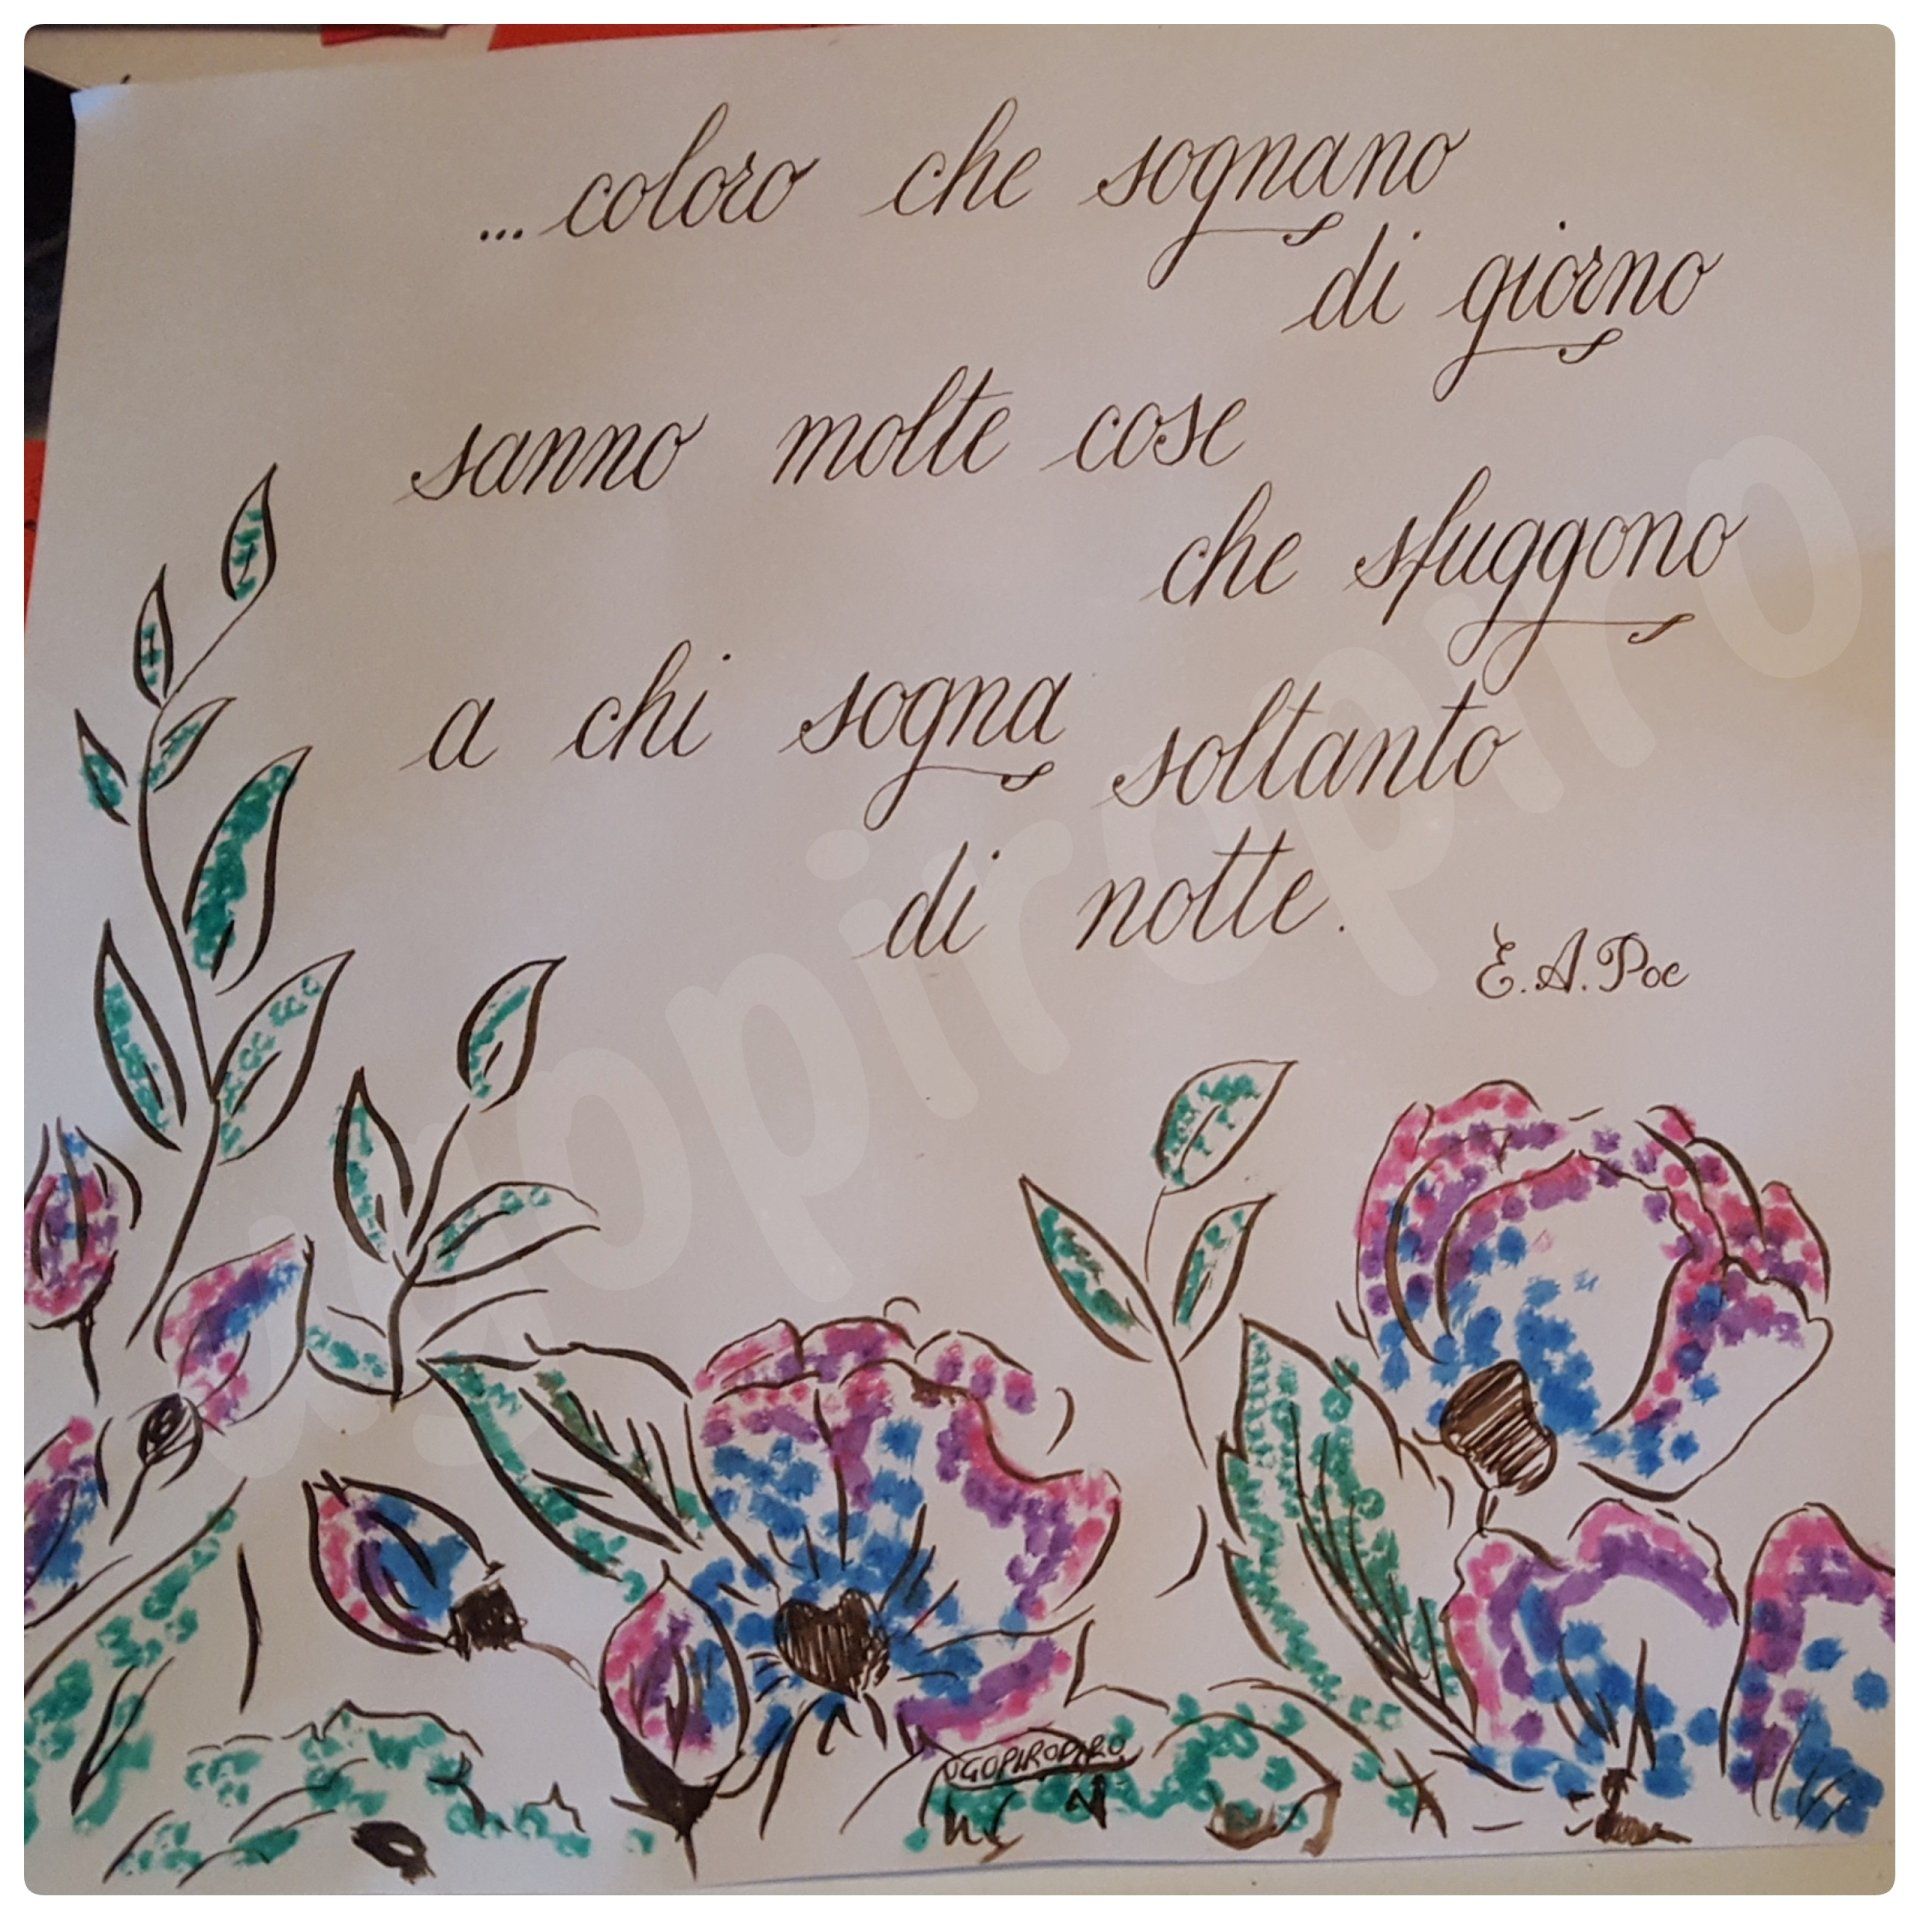 ...coloro che sognano
di giorno
sanno molte cose
che sfuggono
a chi sogna soltanto
di notte.
E.A.Poe
ugopiropiro
UGOPIROPIRO